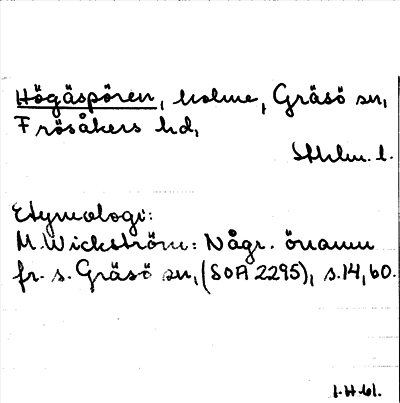 Högäspören, holme, Gräsö sn,
Frösåkers hd,
Sthlm. l.
Etymologi:
M. Wickström: Någr. önamn
fr. s. Gräsö sn, (SOA 2295), s. 14, 60.